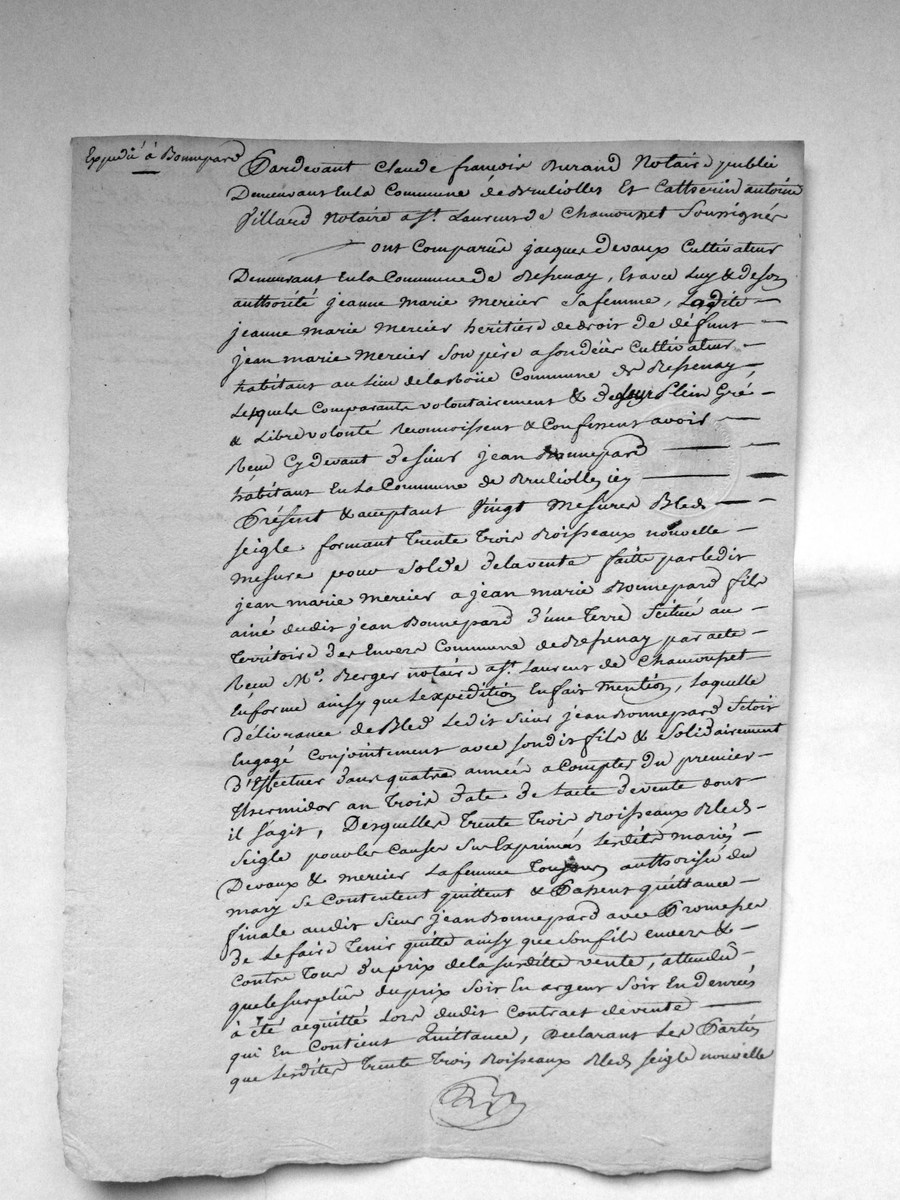 Expedié à Bonnepard
Pardevant Claude françois Durand Notaire public
Demeurant En la Commune de Bruliolles Et Catherin antoine
Villard Notaire a St. Laurens de Chamousset Soussignés
ont Comparûs jacques devaux Cultivateur
Demeurant En la Commune de Bessenay, Et avec Luy & de son
authorité jeanne marie mercier sa femme, Ladite
jeanne marie mercier héritiere de droit de défunt
jean marie mercier Son père a son décès Cultivateur
habitant au Lieu de la Commune de Bessenay,
Lesquels Comparants volontairement & de leur Plein Gré
& Libre volonté Reconnoissent & Confessent avoir
Recu Cydevant de sieur jean Bonnepard
habitant En La Commune de Bruliolles icy
Présent & acceptant Vingt mesures Bled
seigle formant Trente Trois Boisseaux nouvelle
mesure pour Solde de la vente faitte par ledit
jean marie mercier a jean marie Bonnepard fils
ainé dudit jean Bonnepard d'une Terre Scituée au
Territoire des Envers Commune de Bessenay par acte
Recu Me. Berger notaire a St. Laurent de Chamousset
En forme ainsy que L'expédition En fait mention, Laquelle
délivrance de Bled Ledit Sieur jean Bonnepard s'etoit
Engagé Conjointement avec sondit fils & Solidairement
d'Effectuer dans quatre années a Compter du premier
Thermidor an Trois date de l'acte de vente dont
il s'agit, Desquelles Trente Trois Boisseaux Bled
seigle pour les Causes Sus Exprimés Lesdits mariés
Devaux & mercier La femme Toujours authorisée du
mary se Contentent quittent & Passent quittance
finale audit Sieur jean Bonnepard avec Promesse
de Le faire Tenir quitte ainsy que son fils envers &
Contre Tous du prix de la susditte vente, attendû
que le surplus du prix Soit En argent Soit En denrées
à été acquitté Lors dudit Contract de vente
qui En Contient Quittance, Déclarant Les Parties
que Lesdites Trente Trois Boisseaux Bled seigle nouvelle